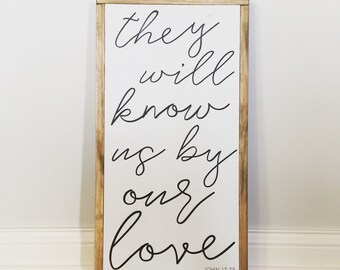 they
will
know
us by
our
love
JOHN 13:35